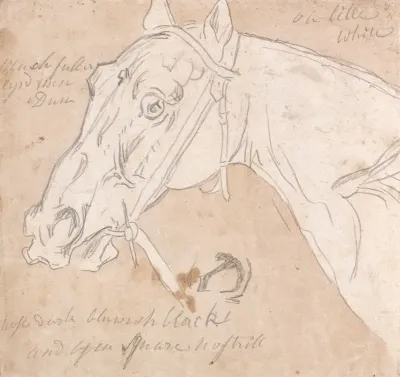 on little
white
much fuller
eyd then
Dun
nose dark blueish black
and open square nostrill